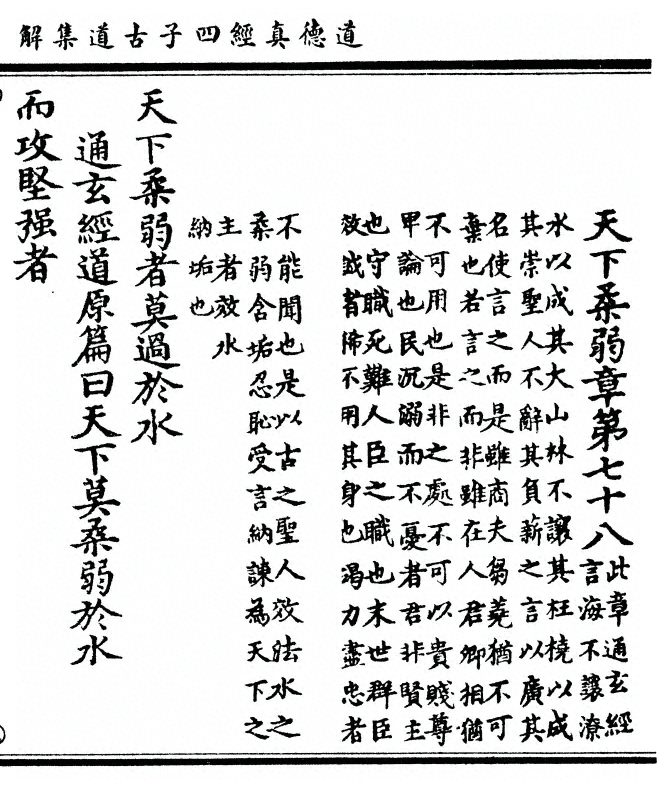 道德真經四子古道集解
天下柔弱章第七十八
此章通玄經
言海不讓潦
水以成其大山林不讓其枉橈以成
其崇聖人不辭其負薪之言以廣其
名使言之而是雖商夫芻蕘猶不可
棄也若言之而非雖在人君卿相猶
不可用也是非之處不可以貴賤尊
卑論也民沉溺而不憂者君非賢主
也守職死難人臣之職也末世群臣
效誠者俙不用其身也竭力盡忠者
不能聞也是以古之聖人效法水之
柔弱含垢忍恥受言納諫為天下之
主者效水
納垢也
天下柔弱者莫過於水
通玄經道原篇曰天下莫柔弱於水
而攻堅强者